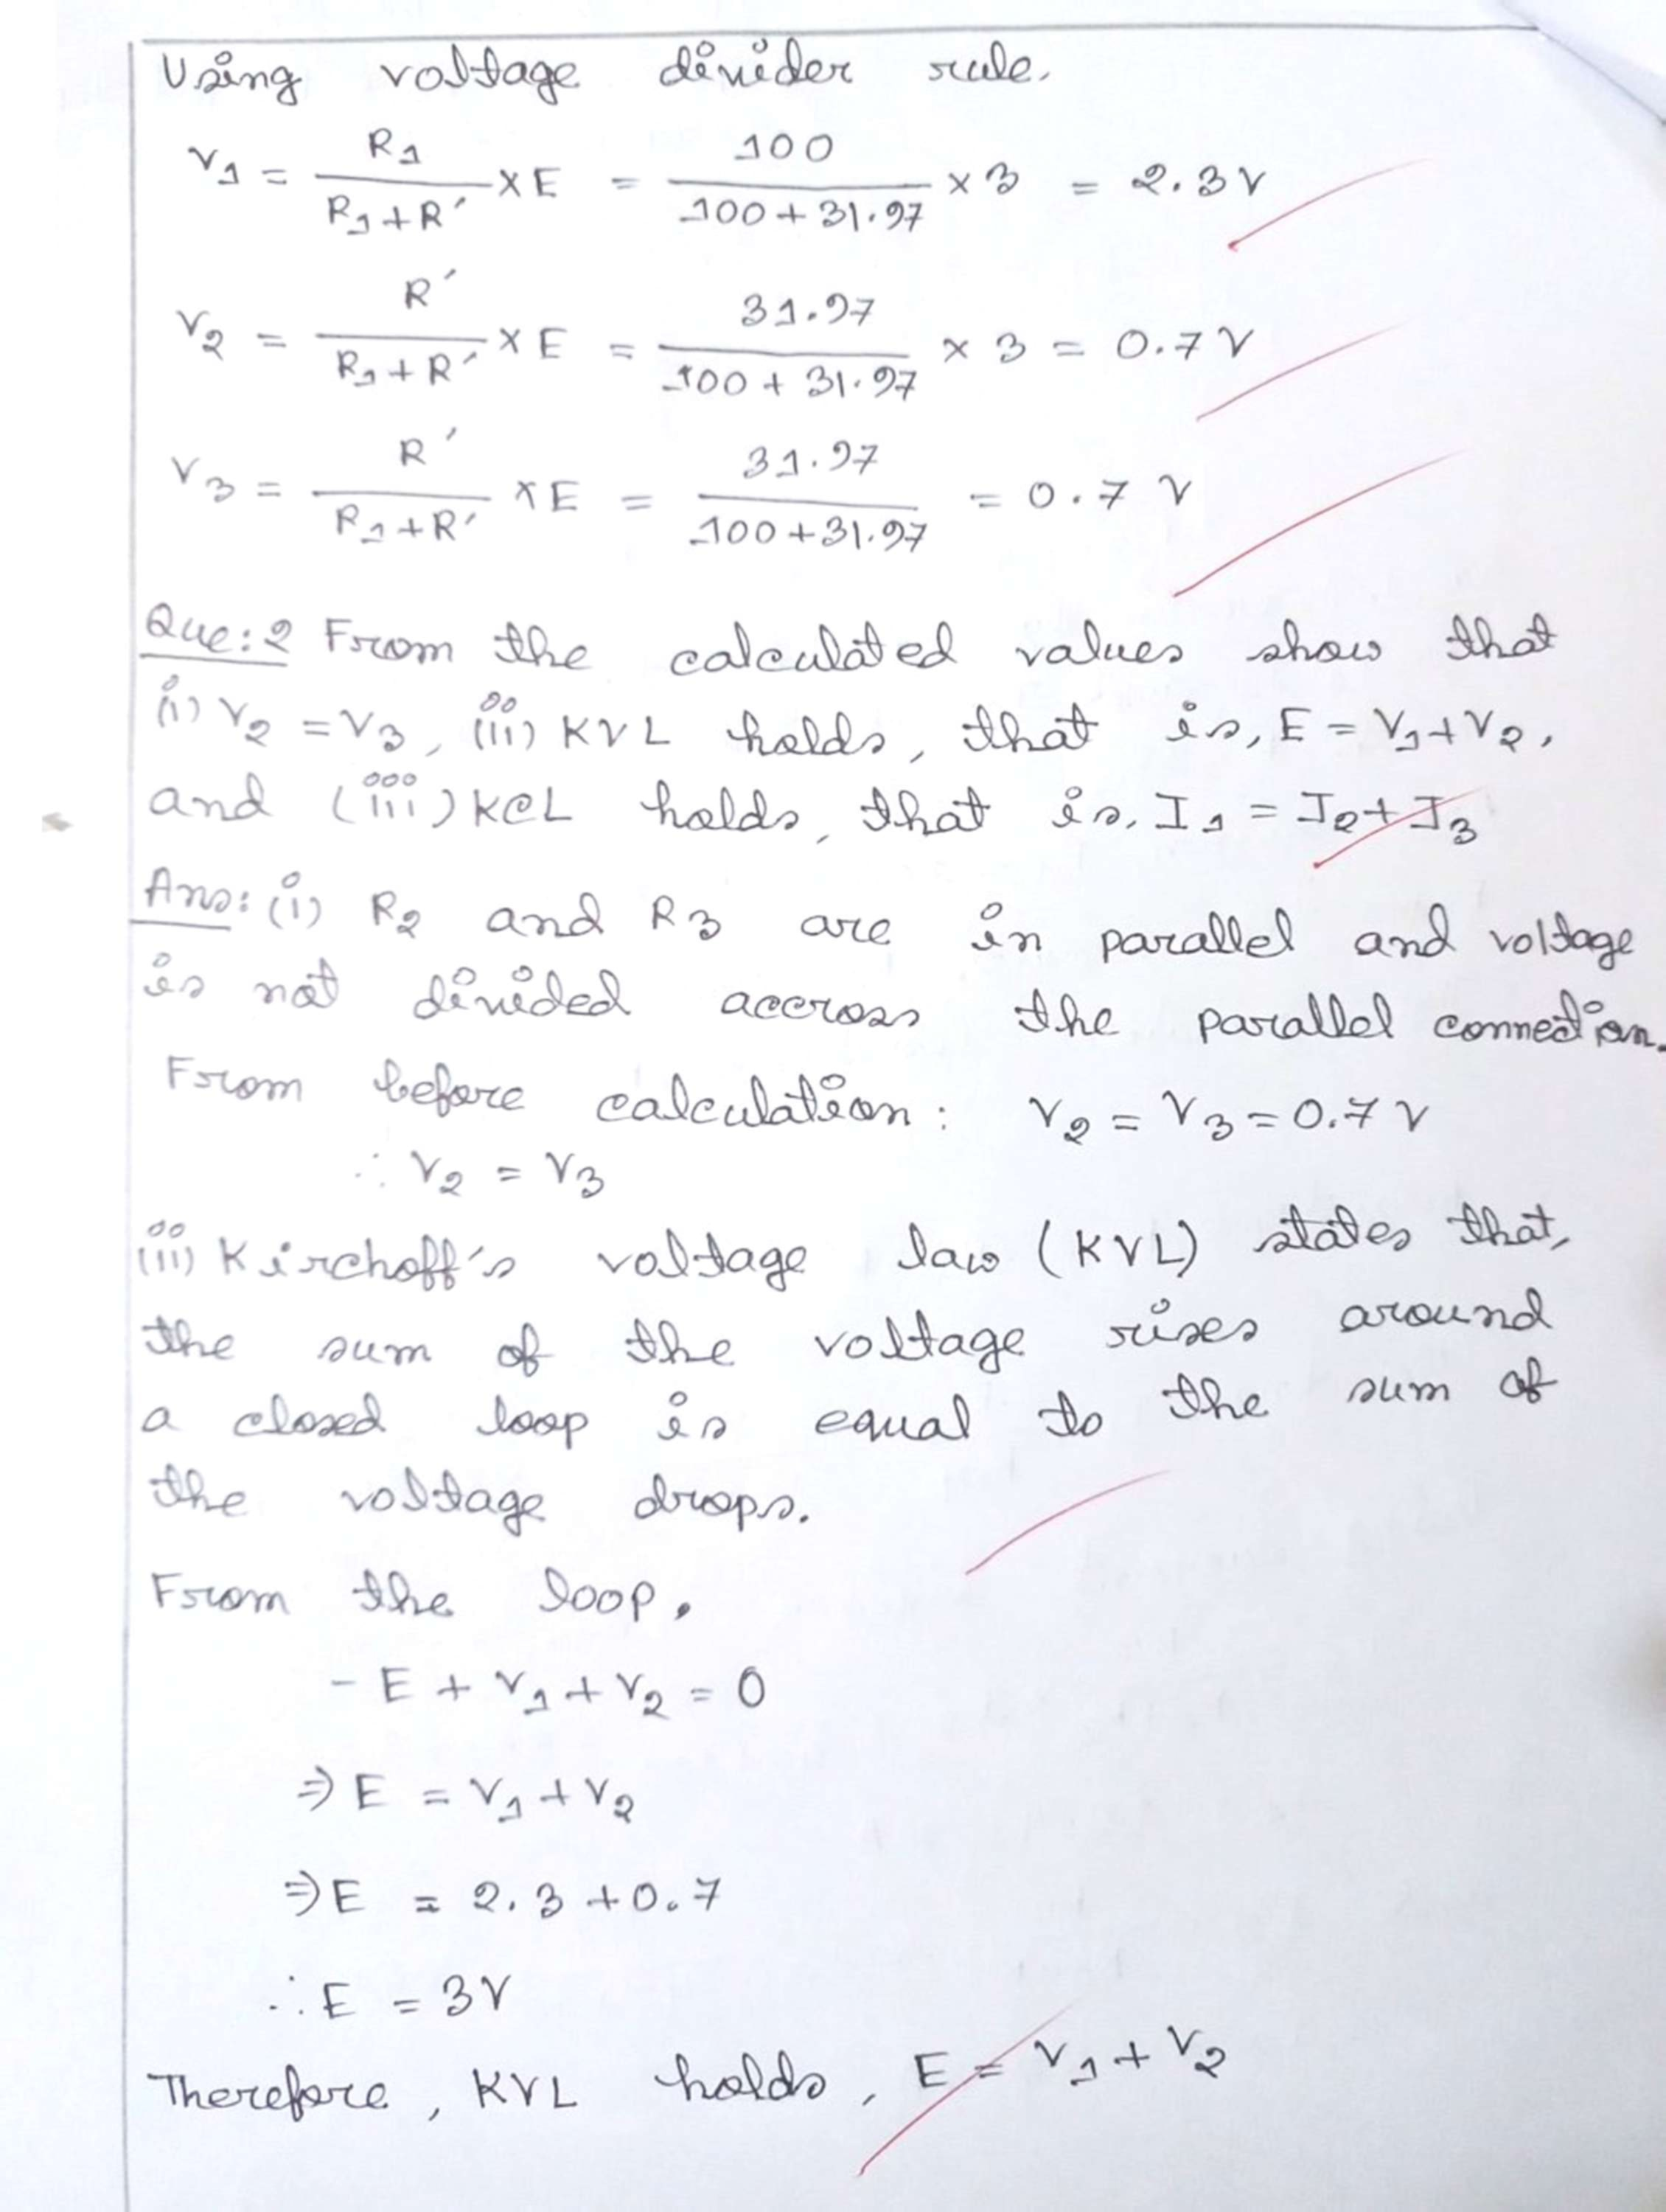 Using voltage divider rule.
V1 = R1/(R1+R′) × E = 100/(100+31.97) × 3 = 2.3 V
V2 = R′/(R1+R′) × E = 31.97/(100+31.97) × 3 = 0.7 V
V3 = R′/(R1+R′) × E = 31.97/(100+31.97) = 0.7 V
Que:2 From the calculated values show that
(i) V2 = V3, (ii) KVL holds, that is, E = V1+V2,
and (iii) KCL holds, that is, I1 = I2+I3
Ans: (i) R2 and R3 are in parallel and voltage
is not divided accross the parallel connection.
From before calculation: V2 = V3 = 0.7 V
∴ V2 = V3
(ii) Kirchoff's voltage law (KVL) states that,
the sum of the voltage rises around
a closed loop is equal to the sum of
the voltage drops.
From the loop,
- E + V1 + V2 = 0
⇒ E = V1 + V2
⇒ E = 2.3 + 0.7
∴ E = 3V
Therefore, KVL holds, E = V1 + V2